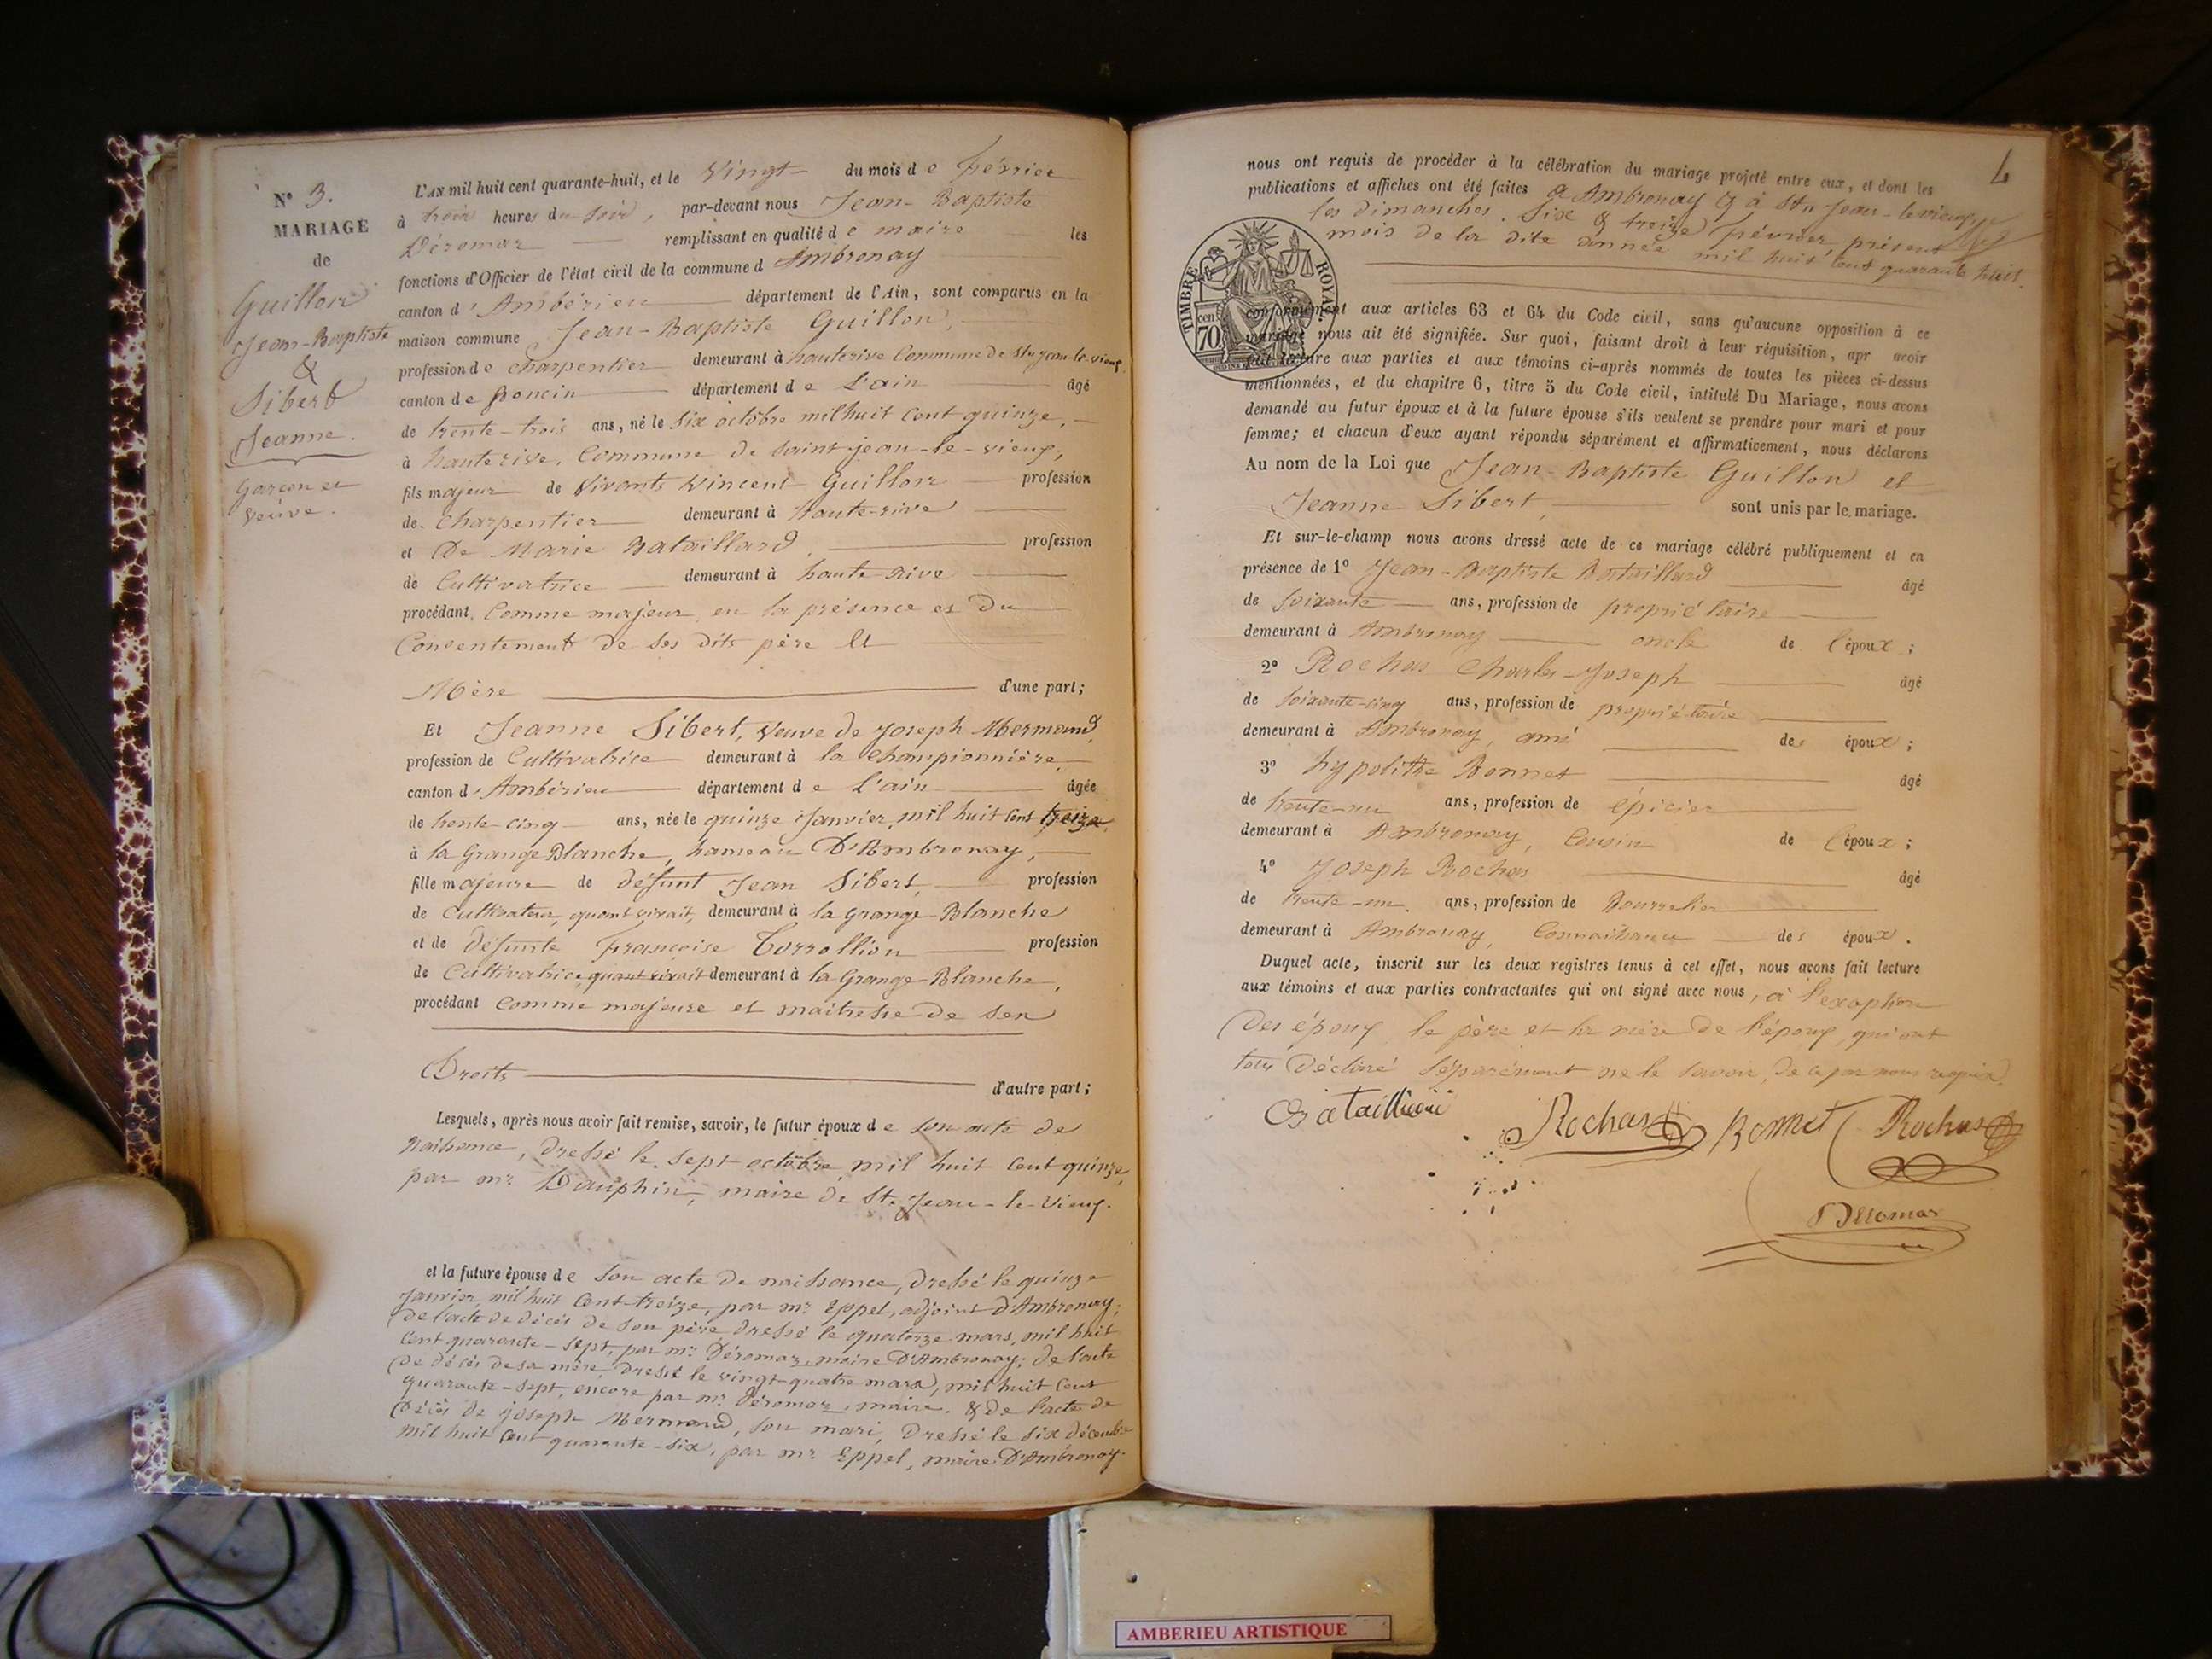 N° 3.
MARIAGE
de
Guillon
Jean-Baptiste
&
Sibert
Jeanne.
Garçon et
veuve.
L'AN mil huit cent quarante-huit, et le Vingt du mois de février
à trois heures du soir, par-devant nous Jean-Baptiste
Déromas remplissant en qualité de maire les
fonctions d'Officier de l'état civil de la commune d Ambronay
canton d'Ambérieu département de l'Ain, sont comparus en la
maison commune Jean-Baptiste Guillon,
profession de charpentier demeurant à hauterive Commune de St Jean-le-vieux,
canton de poncin département de L'ain âgé
de trente-trois ans, né le six octobre mil huit cent quinze,
à hauterive, Commune de saint-jean-le-vieux,
fils majeur de Vivants Vincent Guillon profession
de charpentier demeurant à Haute-rive
et De Marie Bataillard, profession
de Cultivatrice demeurant à haute rive
procédant Comme majeur, en la présence et Du
Consentement de ses dits père Et
Mère d'une part;
Et Jeanne Sibert, Veuve de Joseph Mermand,
profession de Cultivatrice demeurant à la championnière,
canton d'Ambérieu département de L'ain âgée
de trente-cinq ans, née le quinze Janvier mil huit cent treize,
à la Grange Blanche, hameau D'Ambronay,
fille majeure de défunt Jean Sibert, profession
de Cultivateur, quant vivait, demeurant à la Grange-Blanche
et de défunte Françoise profession
de Cultivatrice, quant vivait demeurant à la Grange-Blanche,
procédant Comme majeure et maitresse de ses
Droits d'autre part;
Lesquels, après nous avoir fait remise, savoir, le futur époux de son acte de
Naissance, Dressé le sept octobre mil huit cent quinze,
par mr. Dauphin, maire de St. Jean-le-Vieux.
et la future épouse de son acte de naissance, Dressé le quinze
Janvier, mil huit Cent-treize, par mr. Eppel, adjoint D'Ambronay;
De l'acte De décès de son père Dressé le quatorze mars, mil huit
Cent quarante-sept, par mr. Déromas, maire D'Ambronay; De l'acte
De décès de sa mère, Dressé le vingt-quatre mars, mil huit Cent
quarante-sept, encore par mr. Déromas, maire. & De l'acte de
Décès de Joseph Mermand, son mari, Dressé le six décembre
mil huit Cent quarante-six, par mr. Eppel, maire D'Ambronay.
4
nous ont requis de procéder à la célébration du mariage projeté entre eux, et dont les
publications et affiches ont été faites à Ambronay & à St. Jean-le-vieux
les dimanches. Six & treize février présent
mois de la dite année mil huit Cent quarante huit.
TIMBRE ROYAL.
cen
70
conformément aux articles 63 et 64 du Code civil, sans qu'aucune opposition à ce
mariage nous ait été signifiée. Sur quoi, faisant droit à leur réquisition, apr avoir
fait lecture aux parties et aux témoins ci-après nommés de toutes les pièces ci-dessus
mentionnées, et du chapitre 6, titre 5 du Code civil, intitulé Du Mariage, nous avons
demandé au futur époux et à la future épouse s'ils veulent se prendre pour mari et pour
femme; et chacun d'eux ayant répondu séparément et affirmativement, nous déclarons
Au nom de la Loi que Jean-Baptiste Guillon et
Jeanne Sibert, sont unis par le mariage.
Et sur-le-champ nous avons dressé acte de ce mariage célébré publiquement et en
présence de 1° Jean-Baptiste Bataillard âgé
de Soixante ans, profession de propriétaire
demeurant à Ambronay oncle de l'époux;
2° Rochas Charles-Joseph âgé
de soixante-cinq ans, profession de propriétaire
demeurant à Ambronay, ami des époux;
3° hypolithe Bonnet âgé
de trente-un ans, profession de épicier
demeurant à Ambronay, Cousin de l'époux;
4° Joseph Rochas âgé
de trente-un. ans, profession de Bourrelier
demeurant à Ambronay, Connaissance des époux.
Duquel acte, inscrit sur les deux registres tenus à cet effet, nous avons fait lecture
aux témoins et aux parties contractantes qui ont signé avec nous, à l'exeption
Des époux, le père et la mère De l'époux, qui ont
tous Déclaré séparément ne le savoir, De ce par nous requis.
Bataillard Rochas Bonnet Rochas
Déromas
AMBERIEU ARTISTIQUE